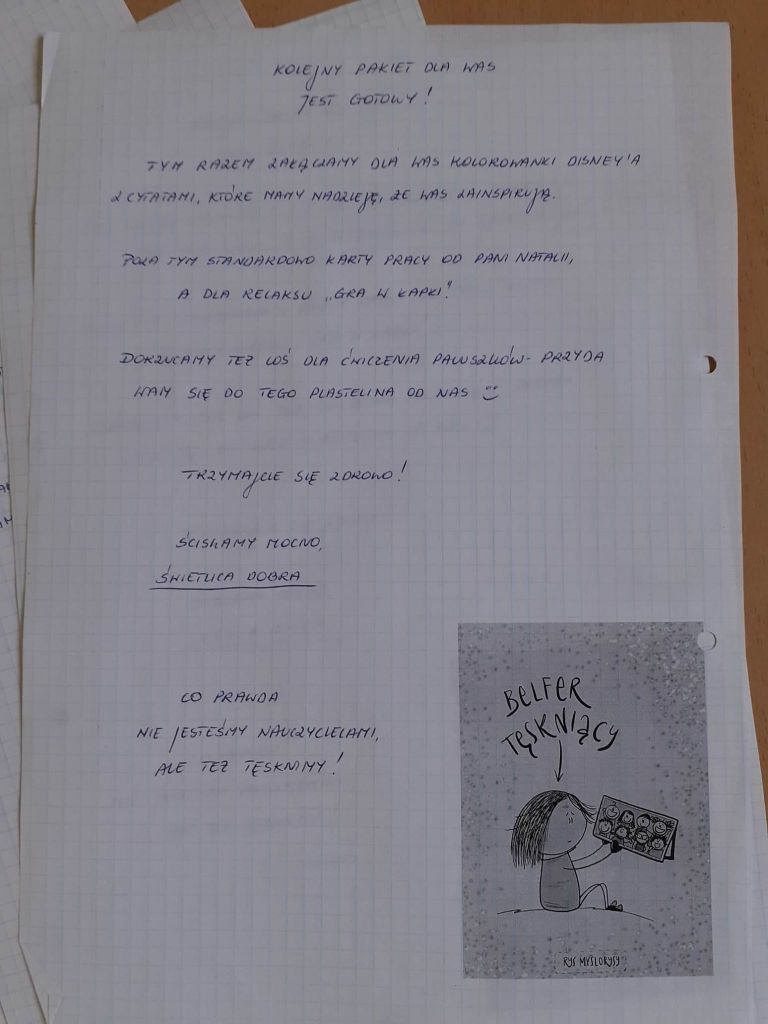 KOLEJNY PAKIET DLA WAS
JEST GOTOWY!
TYM RAZEM ZAŁĄCZAMY DLA WAS KOLOROWANKI DISNEY'A
Z CYTATAMI, KTÓRE MAMY NADZIEJĘ, ŻE WAS ZAINSPIRUJĄ.
POZA TYM STANDARDOWO KARTY PRACY OD PANI NATALII,
A DLA RELAKSU „GRA W ŁAPKI".
DORZUCAMY TEŻ COŚ DLA ĆWICZENIA PALUSZKÓW - PRZYDA
WAM SIĘ DO TEGO PLASTELINA OD NAS
TRZYMAJCIE SIĘ ZDROWO!
ŚCISKAMY MOCNO,
ŚWIETLICA DOBRA
CO PRAWDA
NIE JESTEŚMY NAUCZYCIELAMI,
ALE TEŻ TĘSKNIMY!
BELFER
TĘSKNIĄCY
RYS MYSLORYSY